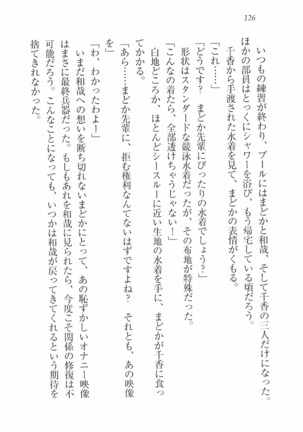 126
いつもの練習が終わり、プールにはまどかと和哉、そして千香の三人だけになった。
ほかの部員はとっくにシャワーを浴び、もう帰宅している頃だろう。
千香から手渡された水着を見て、まどかの表情がくもる。
「これ……」
「どうです? まどか先輩にぴったりの水着でしょう?」
形状はスタンダードな競泳水着だったが、その布地が特殊だった。
「こんなの着たら、全部透けちゃうじゃない!」
白地どころか、ほとんどシースルーに近い生地の水着を手に、まどかが千香に食っ
てかかる。
「あら……まどか先輩に、拒む権利なんてないはずですよね? それとも、あの映像
を――」
「わ、わかったわよ!」
いまだ和哉への想いを断ち切れないまどかにとって、あの恥ずかしいオナニー映像
はまさに最終兵器だった。もしもあれを和哉に見られたら、今度こそ関係の修復は不
可能だろう。こんなことになっても、いつかは和哉が戻ってきてくれるという期待を
捨てきれなかった。